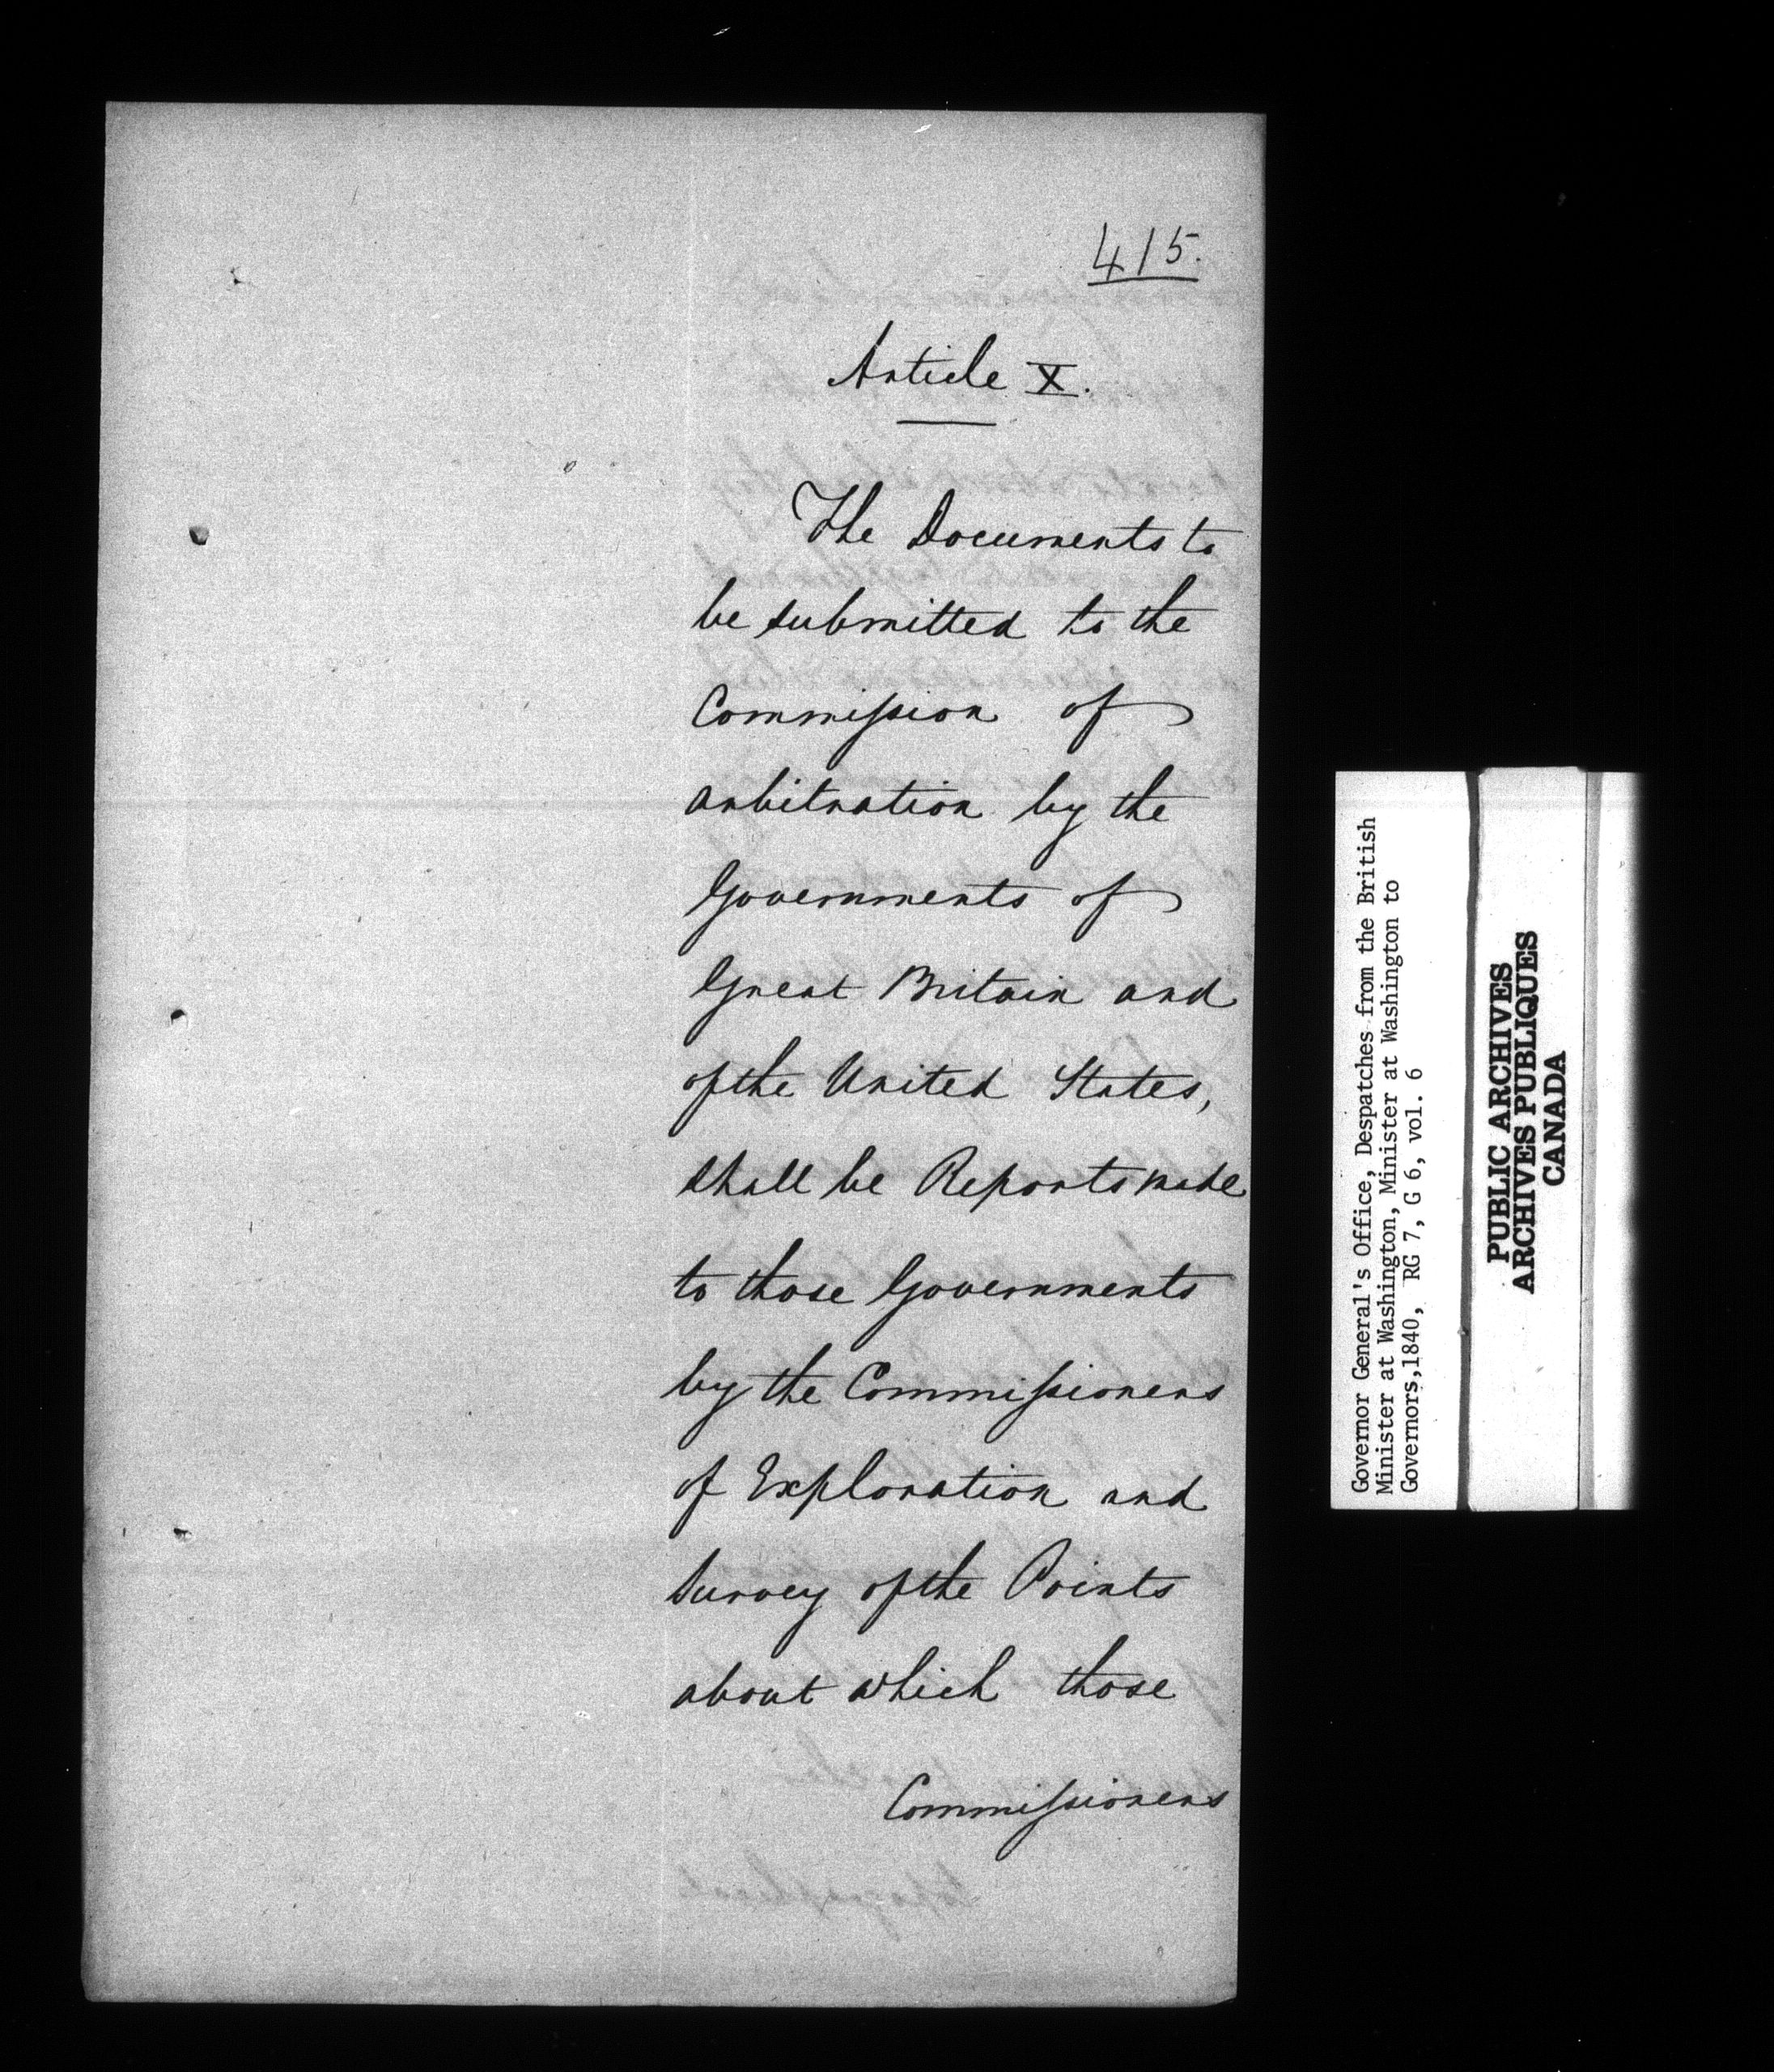 415.
Article X.
The Documents to
be submitted to the
Commission of
arbitration by the
Governments of
Great Britain and
of the United States,
shall be Reports made
to those Governments
by the Commissioners
of Exploration and
Survey of the Points
about which those
Commissioners
Governor General's Office, Despatches from the British
Minister at Washington, Minister at Washington to
Governors,1840, RG 7, G 6, vol. 6
PUBLIC ARCHIVES
ARCHIVES PUBLIQUES
CANADA